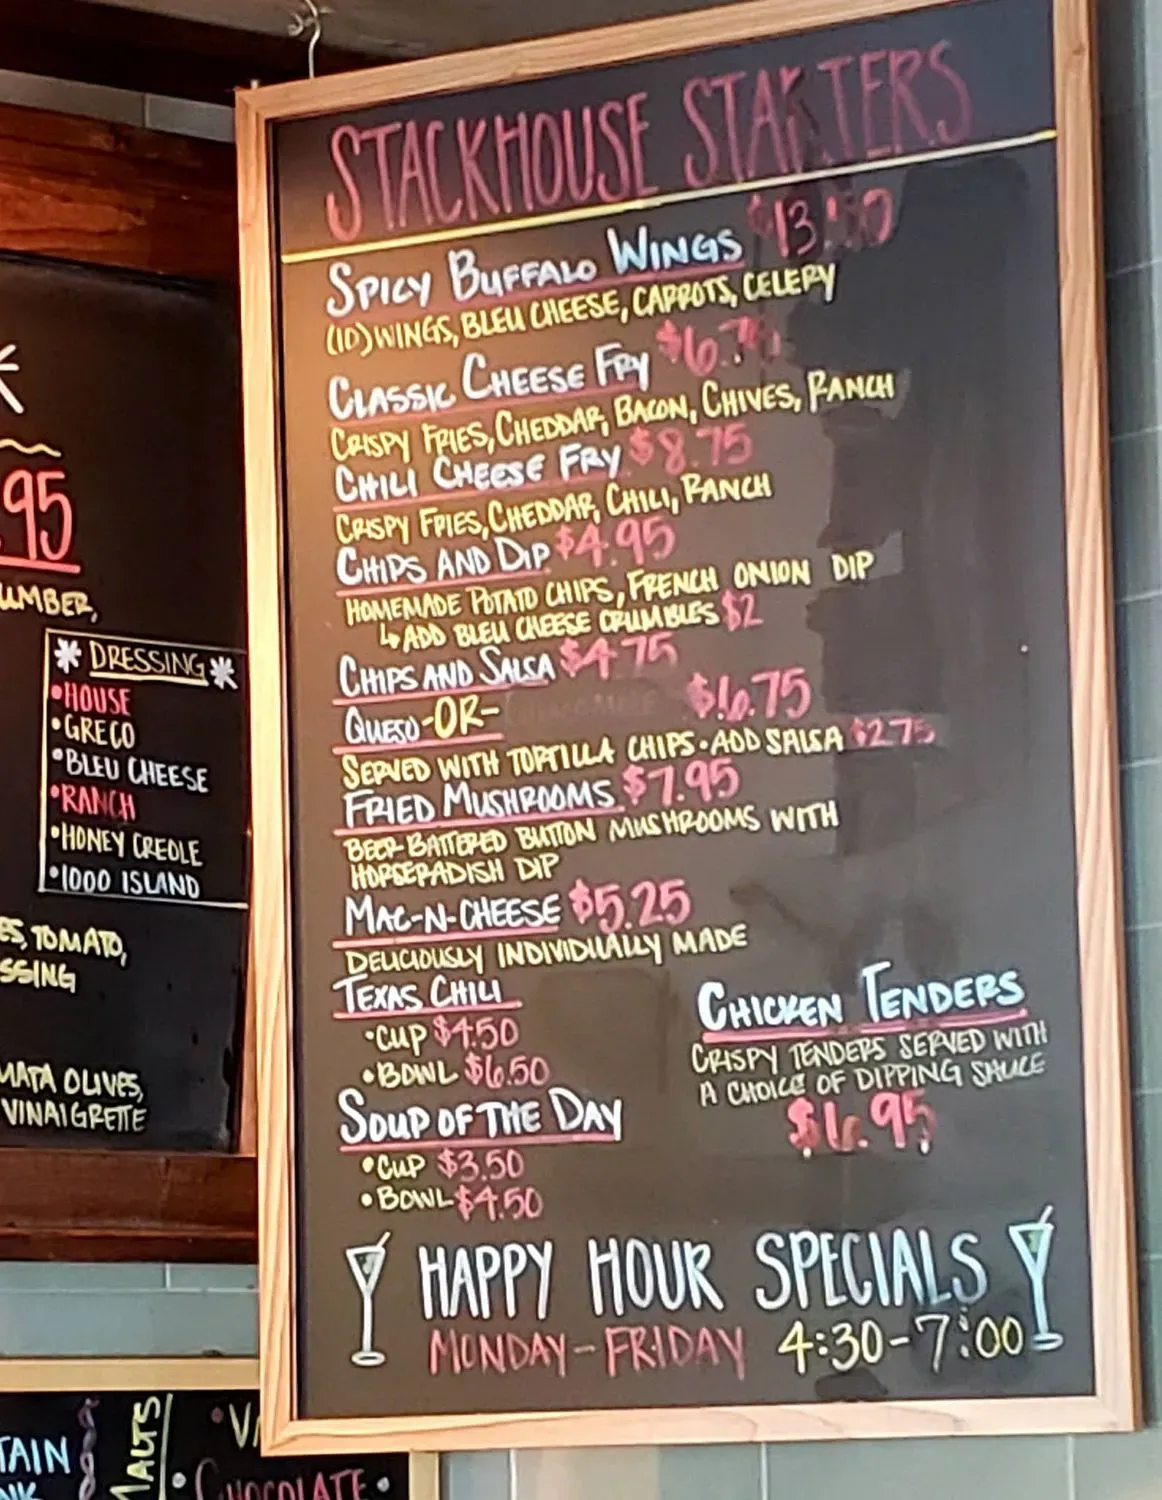 STACKHOUSE STARTERS
SPICY BUFFALO WINGS $13.50
(10) WINGS, BLEU CHEESE, CARROTS, CELERY
CLASSIC CHEESE FRY $6.75
CRISPY FRIES, CHEDDAR, BACON, CHIVES, RANCH
CHILI CHEESE FRY $8.75
CRISPY FRIES, CHEDDAR, CHILI, RANCH
CHIPS AND DIP $4.95
HOMEMADE POTATO CHIPS, FRENCH ONION DIP
↳ ADD BLEU CHEESE CRUMBLES $2
CHIPS AND SALSA $4.75
QUESO -OR- $6.75
SERVED WITH TORTILLA CHIPS • ADD SALSA $2.75
FRIED MUSHROOMS $7.95
BEER-BATTERED BUTTON MUSHROOMS WITH
HORSERADISH DIP
MAC-N-CHEESE $5.25
DELICIOUSLY INDIVIDUALLY MADE
TEXAS CHILI
•CUP $4.50
•BOWL $6.50
SOUP OF THE DAY
•CUP $3.50
•BOWL $4.50
CHICKEN TENDERS
CRISPY TENDERS SERVED WITH
A CHOICE OF DIPPING SAUCE
$6.95
HAPPY HOUR SPECIALS
MONDAY-FRIDAY 4:30-7:00
.95
UMBER,
* DRESSING *
•HOUSE
•GRECO
•BLEU CHEESE
•RANCH
•HONEY CREOLE
•1000 ISLAND
ES, TOMATO,
SSING
MATA OLIVES,
VINAIGRETTE
TAIN
MALTS
•CHOCOLATE•